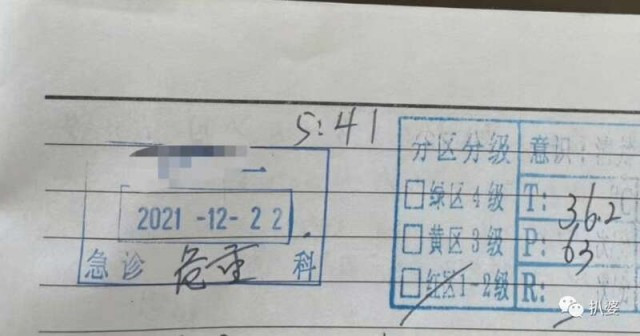 5:41
2021-12-22
急诊 危重 科
分区分级 意识:
绿区4级 T: 36.2
黄区3级 P: 63
红区1-2级 R:
扒婆